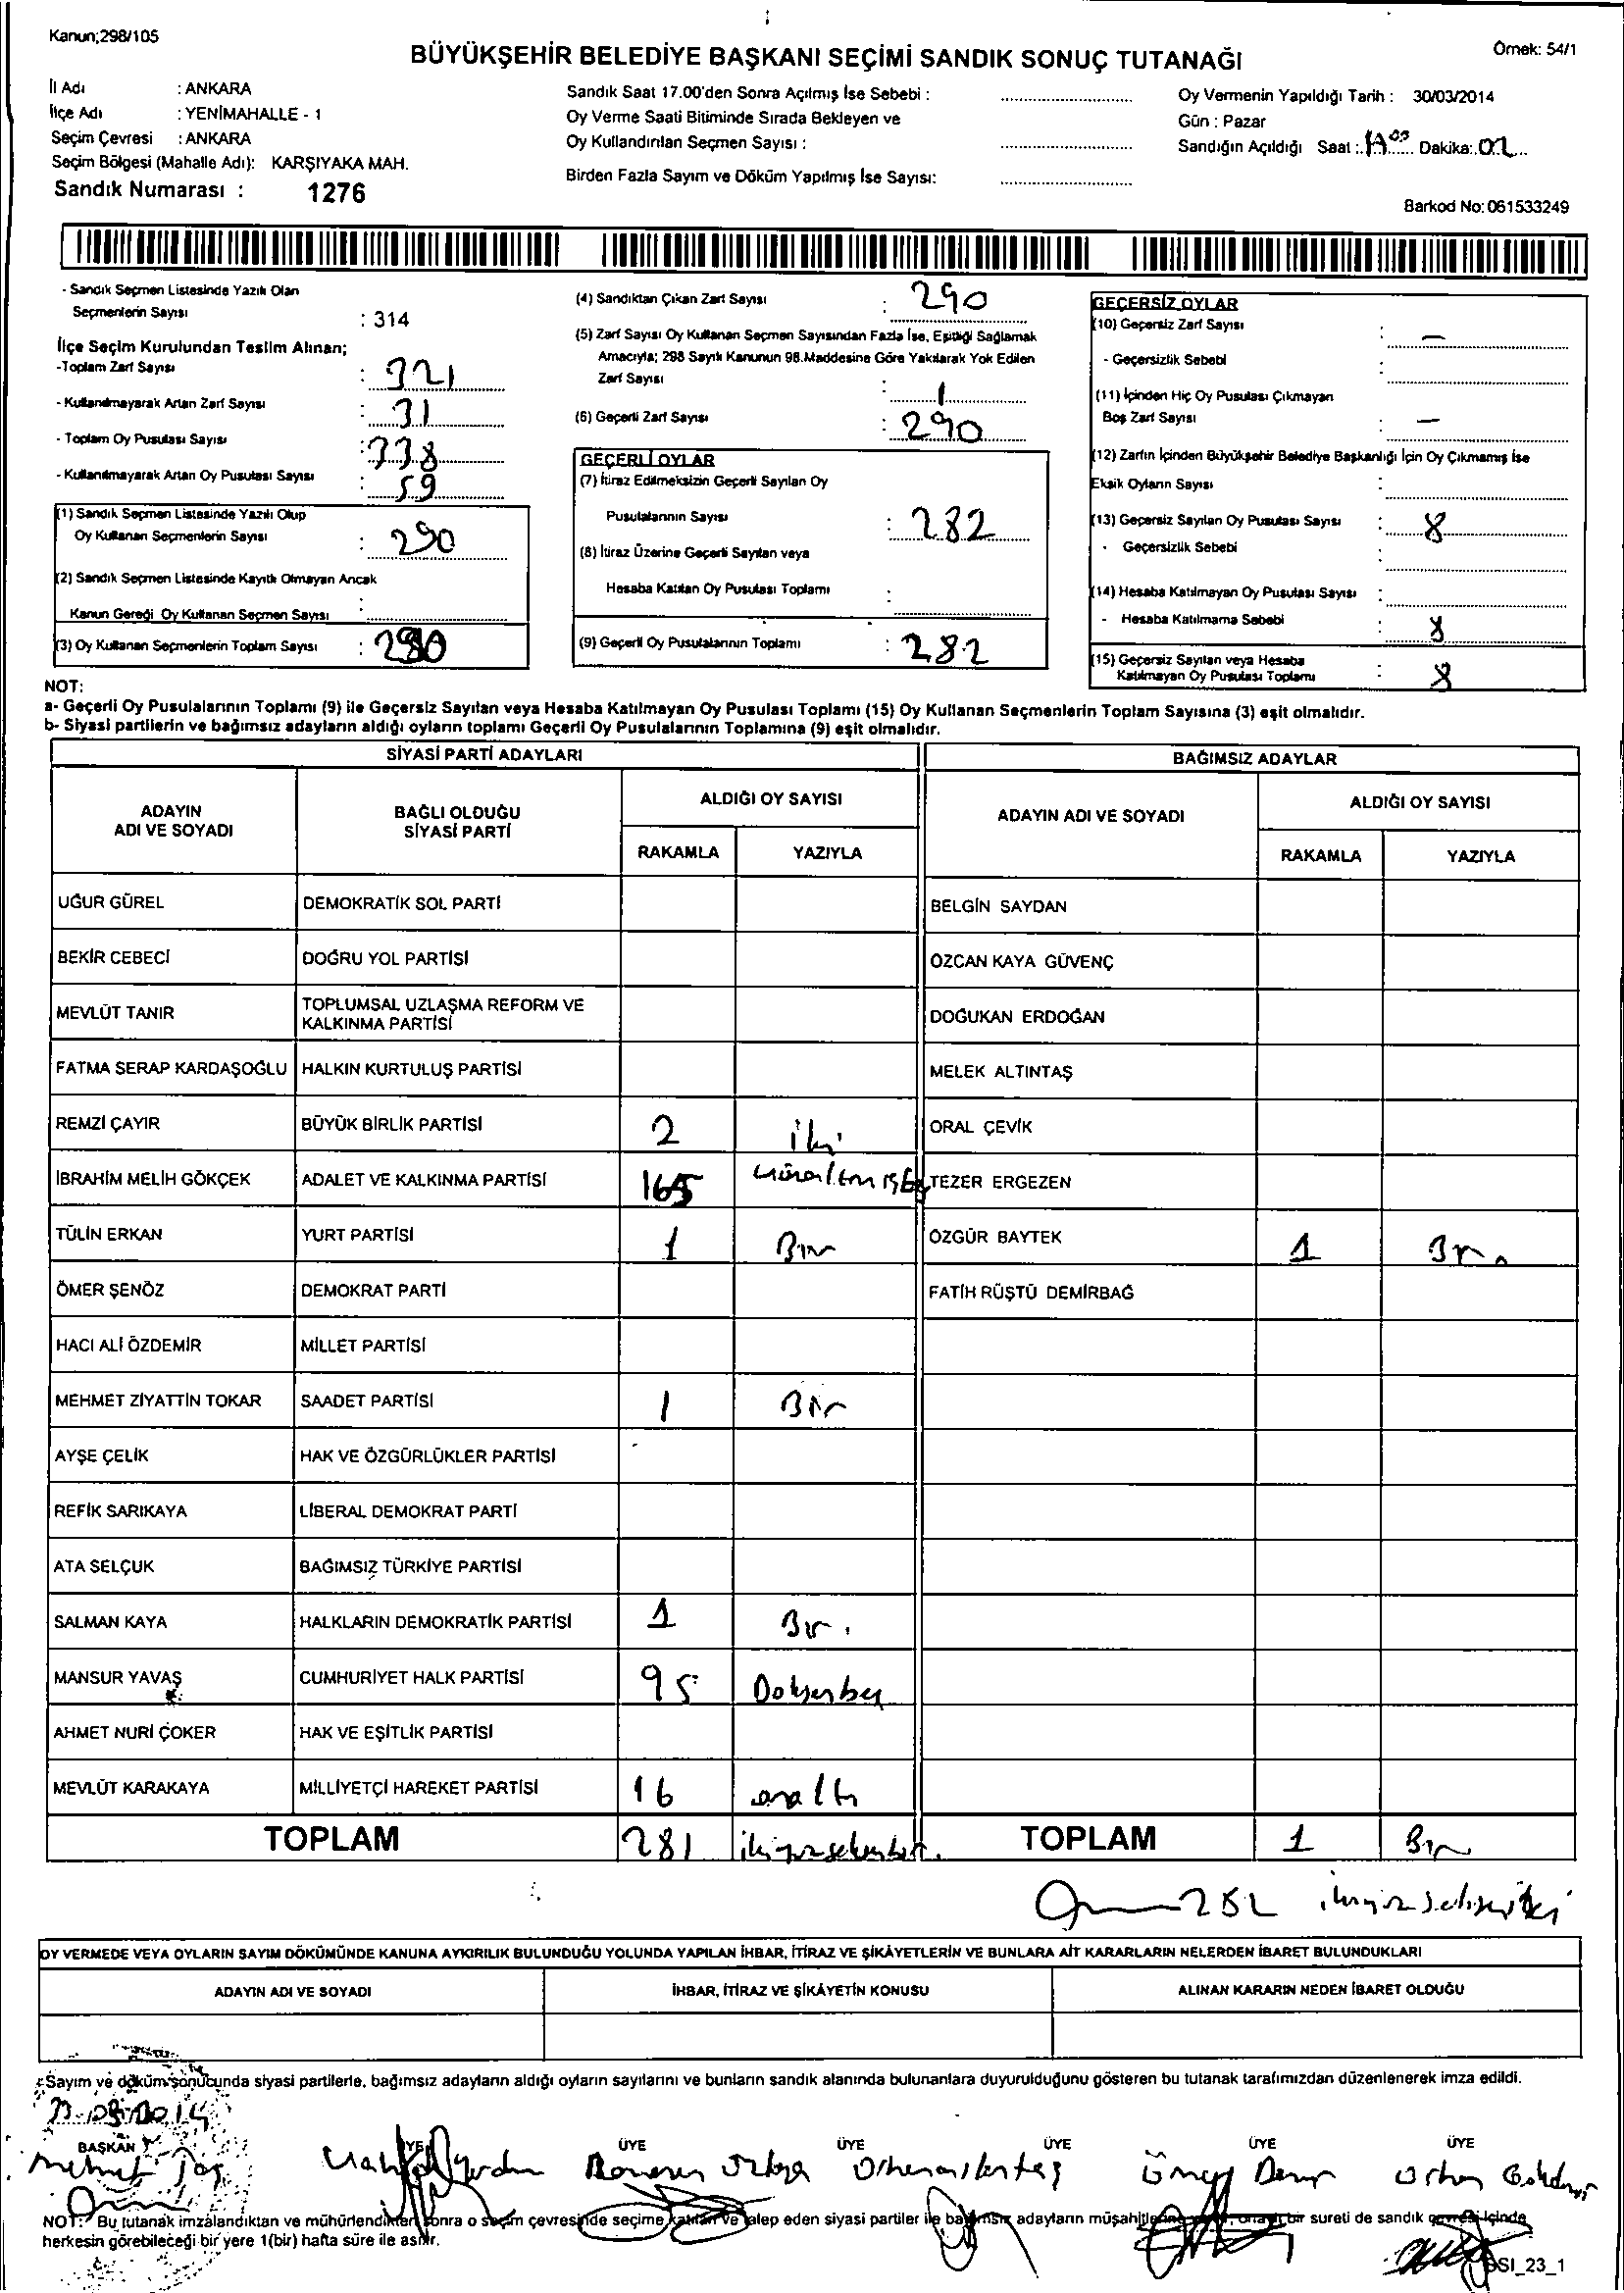 Kanun;298/105
BÜYÜKŞEHİR BELEDİYE BAŞKANI SEÇİMİ SANDIK SONUÇ TUTANAĞI
Örnek: 54/1
İl Adı : ANKARA
İlçe Adı : YENİMAHALLE - 1
Seçim Çevresi : ANKARA
Seçim Bölgesi (Mahalle Adı): KARŞIYAKA MAH.
Sandık Numarası : 1276
Sandık Saat 17.00'den Sonra Açılmış İse Sebebi :
Oy Verme Saati Bitiminde Sırada Bekleyen ve
Oy Kullandırılan Seçmen Sayısı :
Birden Fazla Sayım ve Döküm Yapılmış İse Sayısı:
Oy Vermenin Yapıldığı Tarih : 30/03/2014
Gün : Pazar
Sandığın Açıldığı Saat : Dakika:
Barkod No: 061533249
- Sandık Seçmen Listesinde Yazılı Olan
Seçmenlerin Sayısı : 314
İlçe Seçim Kurulundan Teslim Alınan;
-Toplam Zarf Sayısı : 321
- Kullanılmayarak Artan Zarf Sayısı : 31
- Toplam Oy Pusulası Sayısı : 338
- Kullanılmayarak Artan Oy Pusulası Sayısı : 59
(1) Sandık Seçmen Listesinde Yazılı Olup
Oy Kullanan Seçmenlerin Sayısı : 290
(2) Sandık Seçmen Listesinde Kayıtlı Olmayan Ancak
Kanun Gereği Oy Kullanan Seçmen Sayısı :
(3) Oy Kullanan Seçmenlerin Toplam Sayısı : 290
(4) Sandıktan Çıkan Zarf Sayısı : 290
(5) Zarf Sayısı Oy Kullanan Seçmen Sayısından Fazla İse, Eşitliği Sağlamak
Amacıyla; 298 Sayılı Kanunun 98.Maddesine Göre Yakılarak Yok Edilen
Zarf Sayısı : 1
(6) Geçerli Zarf Sayısı : 290
GEÇERLİ OYLAR
(7) İtiraz Edilmeksizin Geçerli Sayılan Oy
Pusulalarının Sayısı : 282
(8) İtiraz Üzerine Geçerli Sayılan veya
Hesaba Katılan Oy Pusulası Toplamı :
(9) Geçerli Oy Pusulalarının Toplamı : 282
GEÇERSİZ OYLAR
(10) Geçersiz Zarf Sayısı : —
- Geçersizlik Sebebi :
(11) İçinden Hiç Oy Pusulası Çıkmayan
Boş Zarf Sayısı : —
(12) Zarfın İçinden Büyükşehir Belediye Başkanlığı İçin Oy Çıkmamış İse
Eksik Oyların Sayısı :
(13) Geçersiz Sayılan Oy Pusulası Sayısı : 8
- Geçersizlik Sebebi :
(14) Hesaba Katılmayan Oy Pusulası Sayısı :
- Hesaba Katılmama Sebebi : 8
(15) Geçersiz Sayılan veya Hesaba
Katılmayan Oy Pusulası Toplamı : 8
NOT:
a- Geçerli Oy Pusulalarının Toplamı (9) ile Geçersiz Sayılan veya Hesaba Katılmayan Oy Pusulası Toplamı (15) Oy Kullanan Seçmenlerin Toplam Sayısına (3) eşit olmalıdır.
b- Siyasi partilerin ve bağımsız adayların aldığı oyların toplamı Geçerli Oy Pusulalarının Toplamına (9) eşit olmalıdır.
SİYASİ PARTİ ADAYLARI
BAĞIMSIZ ADAYLAR
ADAYIN ADI VE SOYADI
BAĞLI OLDUĞU SİYASİ PARTİ
ALDIĞI OY SAYISI
RAKAMLA YAZIYLA
ADAYIN ADI VE SOYADI
ALDIĞI OY SAYISI
RAKAMLA YAZIYLA
UĞUR GÜREL DEMOKRATİK SOL PARTİ BELGİN SAYDAN
BEKİR CEBECİ DOĞRU YOL PARTİSİ ÖZCAN KAYA GÜVENÇ
MEVLÜT TANIR TOPLUMSAL UZLAŞMA REFORM VE KALKINMA PARTİSİ DOĞUKAN ERDOĞAN
FATMA SERAP KARDAŞOĞLU HALKIN KURTULUŞ PARTİSİ MELEK ALTINTAŞ
REMZİ ÇAYIR BÜYÜK BİRLİK PARTİSİ 2 iki ORAL ÇEVİK
İBRAHİM MELİH GÖKÇEK ADALET VE KALKINMA PARTİSİ 165 TEZER ERGEZEN
TÜLİN ERKAN YURT PARTİSİ 1 Bir ÖZGÜR BAYTEK 1 Bir
ÖMER ŞENÖZ DEMOKRAT PARTİ FATİH RÜŞTÜ DEMİRBAĞ
HACI ALİ ÖZDEMİR MİLLET PARTİSİ
MEHMET ZİYATTİN TOKAR SAADET PARTİSİ 1 Bir
AYŞE ÇELİK HAK VE ÖZGÜRLÜKLER PARTİSİ
REFİK SARIKAYA LİBERAL DEMOKRAT PARTİ
ATA SELÇUK BAĞIMSIZ TÜRKİYE PARTİSİ
SALMAN KAYA HALKLARIN DEMOKRATİK PARTİSİ 1 Bir.
MANSUR YAVAŞ CUMHURİYET HALK PARTİSİ 95 Doksanbeş
AHMET NURİ ÇOKER HAK VE EŞİTLİK PARTİSİ
MEVLÜT KARAKAYA MİLLİYETÇİ HAREKET PARTİSİ 16 onaltı
TOPLAM 281 ikiyüzseksenbir. TOPLAM 1 Bir
282 ikiyüzsekseniki
OY VERMEDE VEYA OYLARIN SAYIM DÖKÜMÜNDE KANUNA AYKIRILIK BULUNDUĞU YOLUNDA YAPILAN İHBAR, İTİRAZ VE ŞİKÂYETLERİN VE BUNLARA AİT KARARLARIN NELERDEN İBARET BULUNDUKLARI
ADAYIN ADI VE SOYADI İHBAR, İTİRAZ VE ŞİKÂYETİN KONUSU ALINAN KARARIN NEDEN İBARET OLDUĞU
Sayım ve döküm sonucunda siyasi partilerle, bağımsız adayların aldığı oyların sayılarını ve bunların sandık alanında bulunanlara duyurulduğunu gösteren bu tutanak tarafımızdan düzenlenerek imza edildi.
BAŞKAN ÜYE ÜYE ÜYE ÜYE ÜYE ÜYE
NOT: Bu tutanak imzalandıktan ve mühürlendikten sonra o seçim çevresinde seçime katılan ve talep eden siyasi partiler ile bağımsız adayların müşahitlerine onaylı bir sureti de sandık çevresi içinde
herkesin görebileceği bir yere 1(bir) hafta süre ile asılır.
SSI_23_1